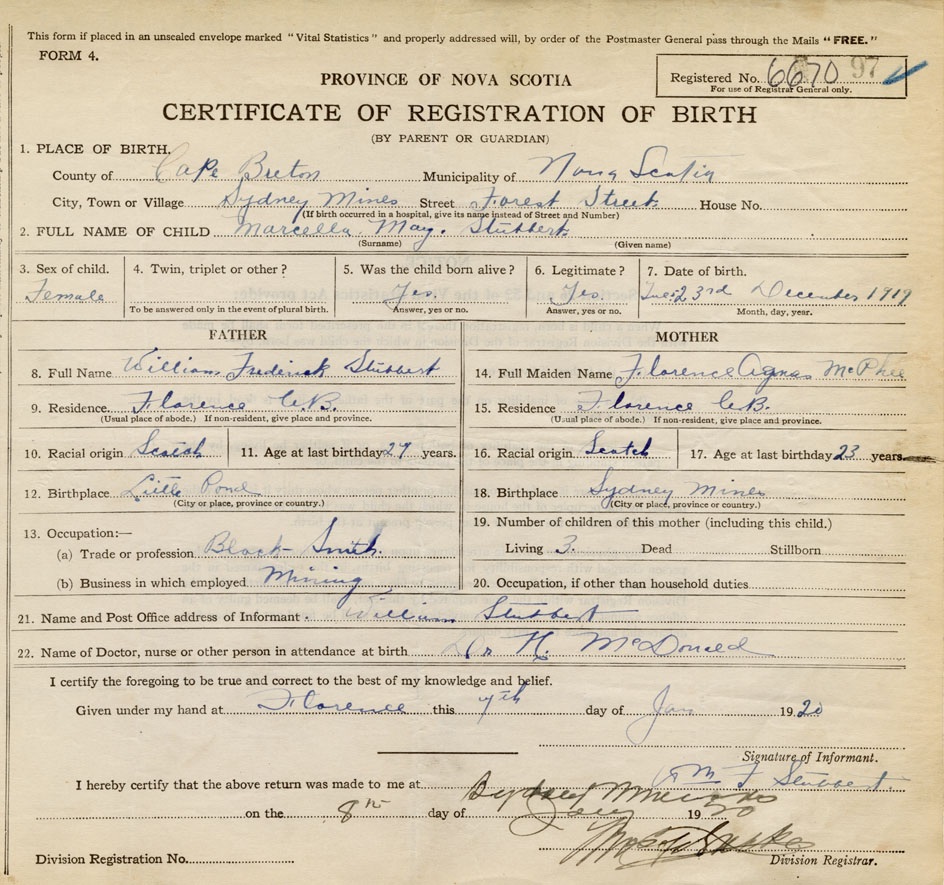 This form if placed in an unsealed envelope marked "Vital Statistics" and properly addressed will, by order of the Postmaster General pass through the Mails "FREE."
FORM 4.
PROVINCE OF NOVA SCOTIA
Registered No. 6670 97
For use of Registrar General only.
CERTIFICATE OF REGISTRATION OF BIRTH
(BY PARENT OR GUARDIAN)
1. PLACE OF BIRTH.
County of Cape Breton Municipality of Nova Scotia
City, Town or Village Sydney Mines Street Forest Street House No.
(If birth occurred in a hospital, give its name instead of Street and Number)
2. FULL NAME OF CHILD Marcella May. Stubbert
(Surname) (Given name)
3. Sex of child. 4. Twin, triplet or other? 5. Was the child born alive? 6. Legitimate? 7. Date of birth.
Female Yes. Yes. Tues 23rd December 1919
To be answered only in the event of plural birth. Answer, yes or no. Answer, yes or no. Month, day, year.
FATHER MOTHER
8. Full Name William Frederick Stubbert 14. Full Maiden Name Florence Agnas McPhee
9. Residence. Florence C.B. 15. Residence Florence C.B.
(Usual place of abode.) If non-resident, give place and province. (Usual place of abode.) If non-resident, give place and province.
10. Racial origin Scotch 11. Age at last birthday 27 years. 16. Racial origin Scotch 17. Age at last birthday 23 years.
12. Birthplace Little Pond 18. Birthplace Sydney Mines
(City or place, province or country.) (City or place, province or country.)
13. Occupation:— 19. Number of children of this mother (including this child.)
(a) Trade or profession Black-Smith. Living 3. Dead Stillborn
(b) Business in which employed Mining 20. Occupation, if other than household duties
21. Name and Post Office address of Informant. William Stubbert
22. Name of Doctor, nurse or other person in attendance at birth Dr H. McDonald
I certify the foregoing to be true and correct to the best of my knowledge and belief.
Given under my hand at Florence this 7th day of Jan 1920
Signature of Informant.
Wm F Stubbert.
I hereby certify that the above return was made to me at Sydney Mines
on the 8th day of Jany 1920
Division Registration No. Division Registrar.